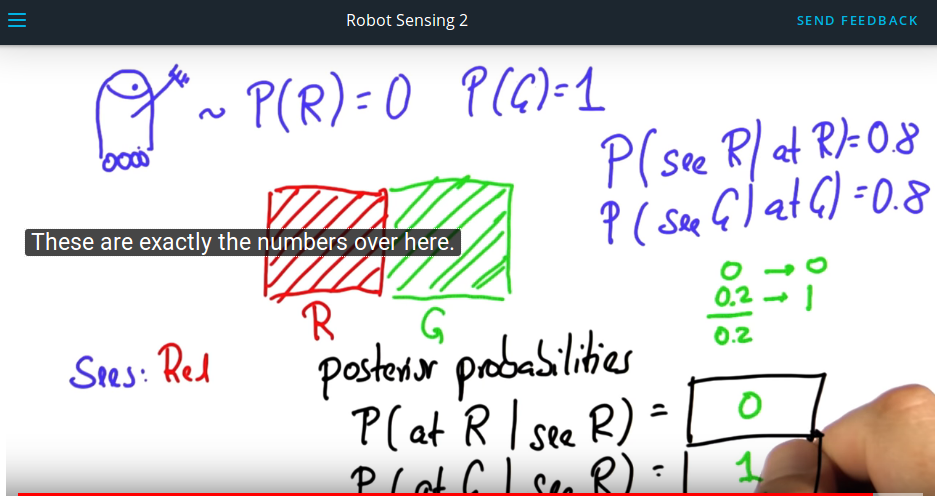 Robot Sensing 2
SEND FEEDBACK
~ P(R)=0 P(G)=1
P(see R| at R)=0.8
P(see G| at G)=0.8
These are exactly the numbers over here.
0 → 0
0.2 → 1
0.2
R G
Sees: Red
posterior probabilities
P(at R | see R) = 0
P(at G | see R) = 1